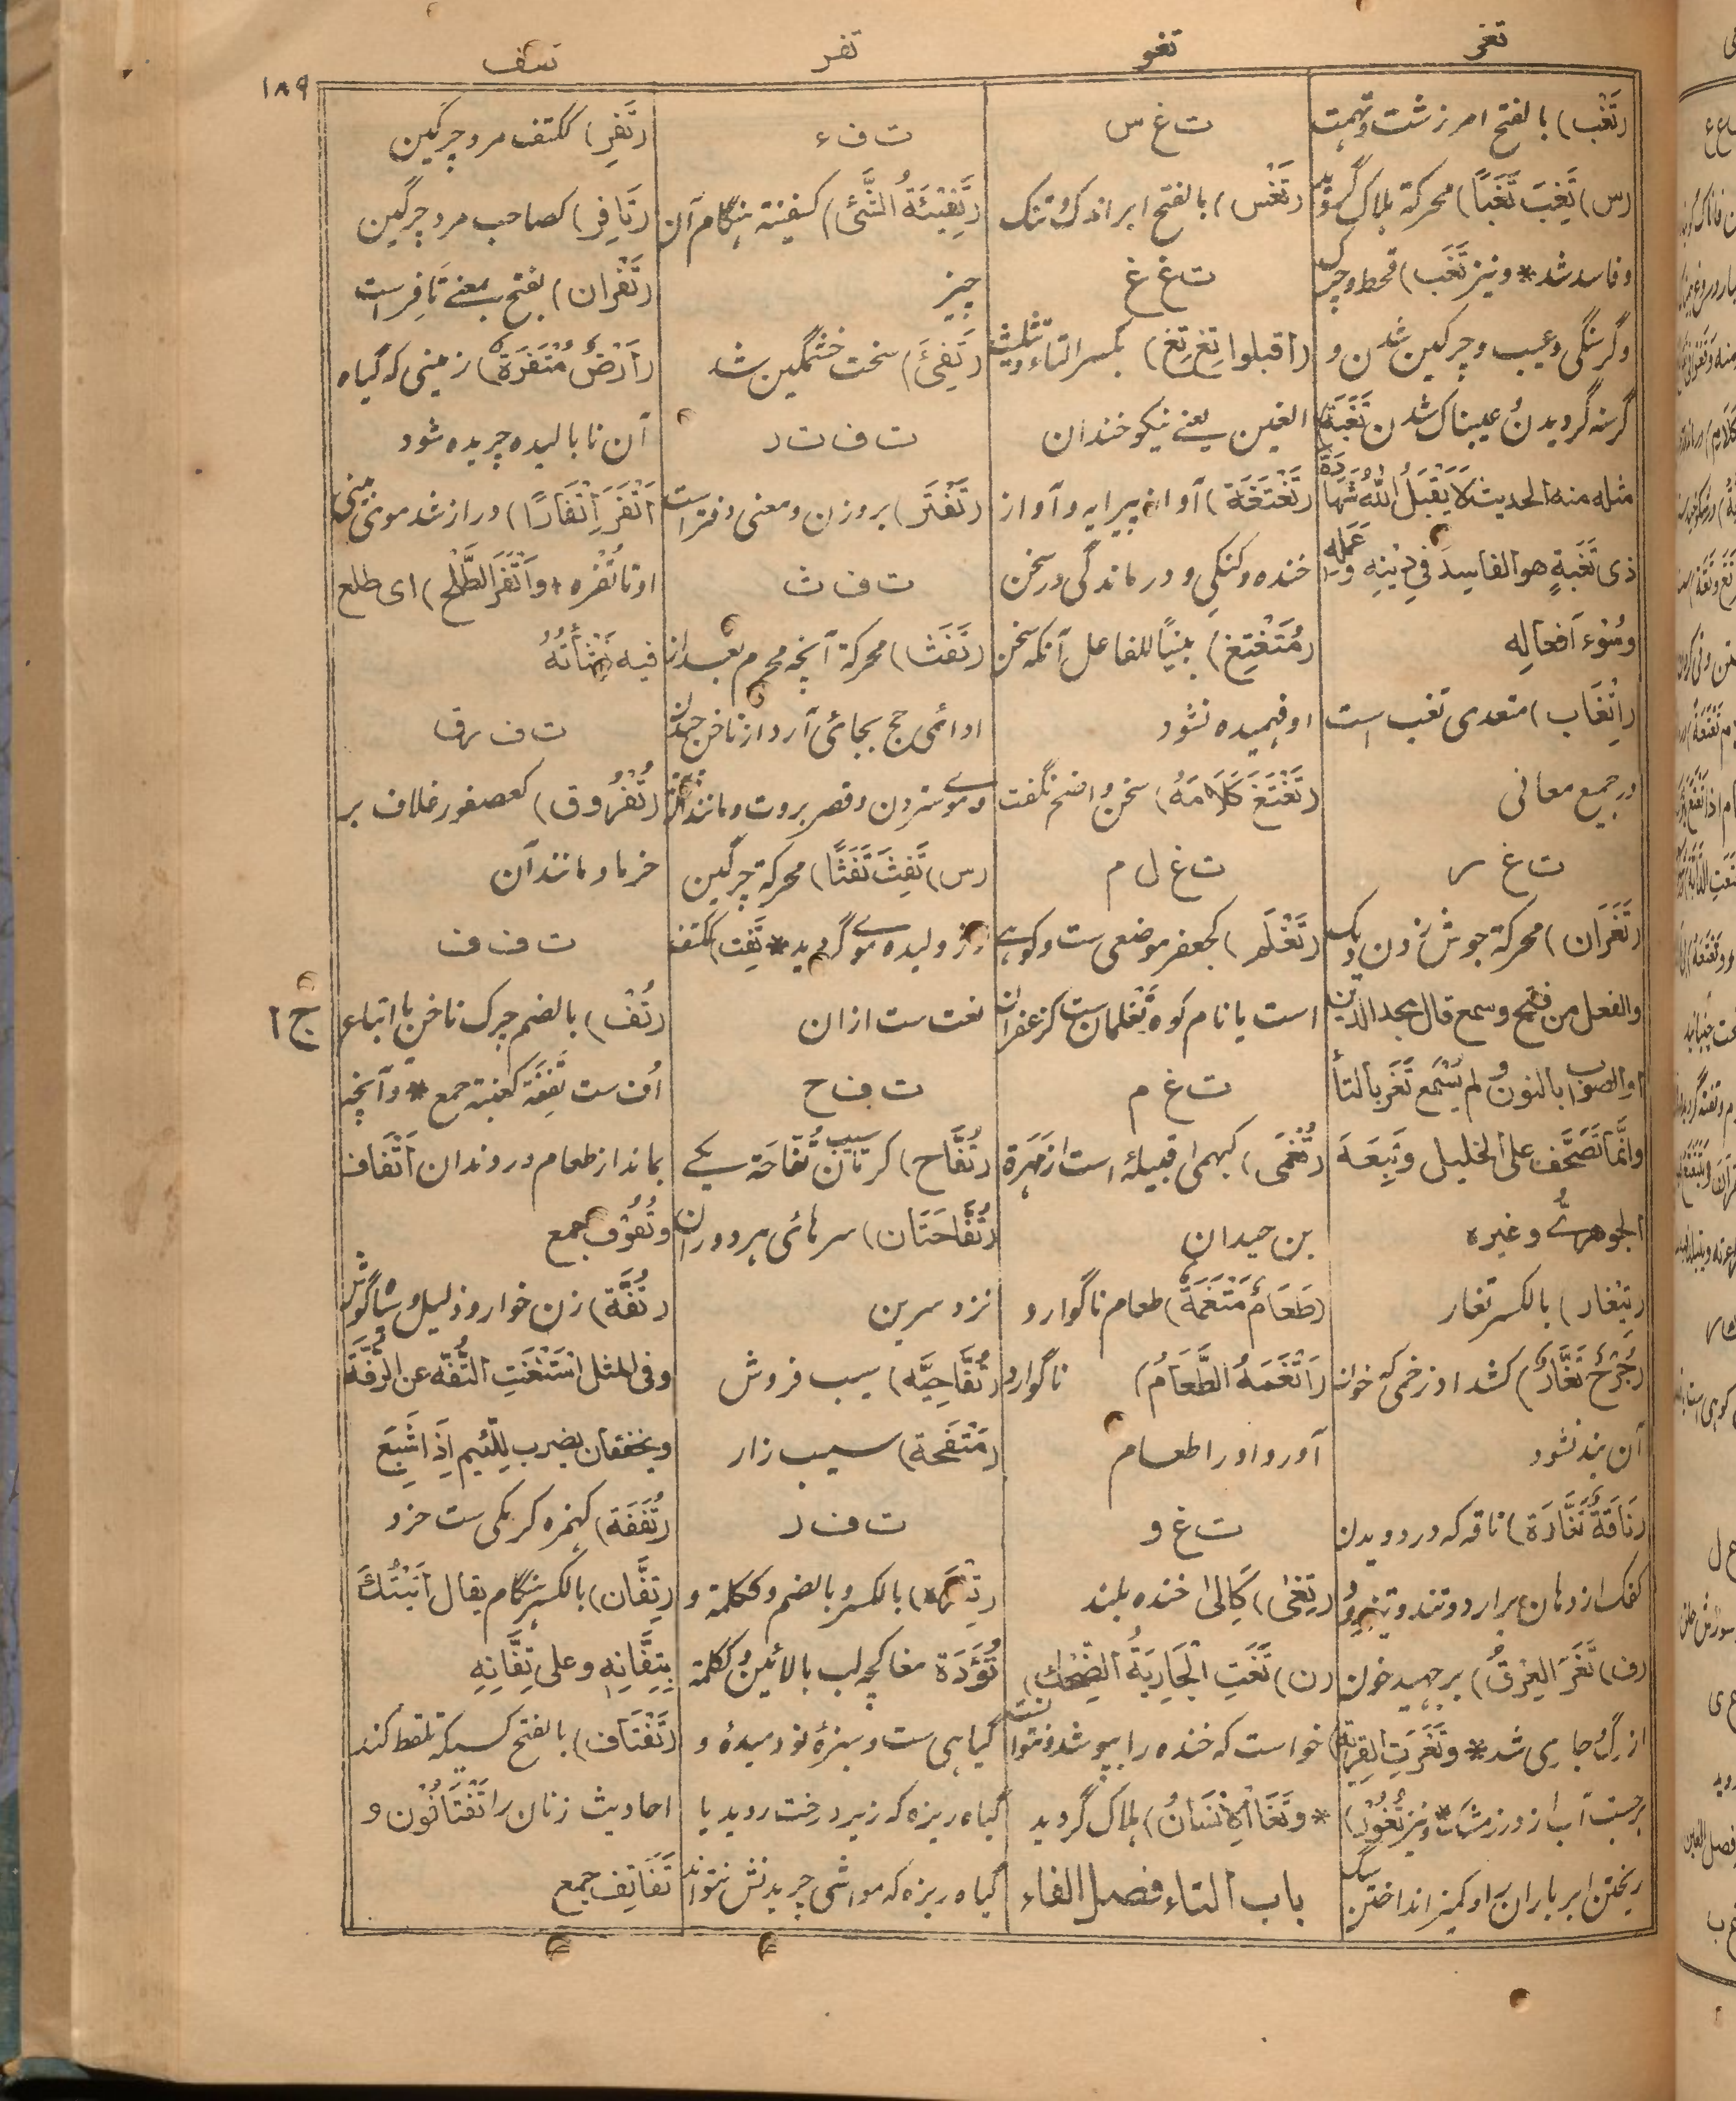 تغر
تغو
تفر
تفف
۱۸۹
(تَغْب) بالفتح امر زشت و تهمت
(س) تَغِبَ تَغَبًا) محرکة هلاک گردید
و فاسد شد * و نیز تَغَب) قحط و چرک
و گرسنگی و عیب و چرکین شدن و
گرسنه گردیدن و عیبناک شدن تَغَبَة)
مثله منه الحدیث لَا یَقْبَلُ اللّٰهُ شَهَادَةَ
ذی تَغَبَةٍ هو الفاسدَ فِی دِیْنِهِ و عَمَلِه
وسُوْء اَفعالِه
(اِتْغَاب) متعدی تغب است
در جمیع معانی
ت غ ر
(تَغَرَان) محرکة جوش زدن دیگ
والفعل من فتح و سمع قال مجد الدین
او الصواب بالنون و لم یُسْمَع تَغَر بالتأ
وانّما تَصَحَّف علی الخلیل وَتَبِعَهَ
الجوهریُّ و غیره
(تِیْغَار) بالکسر تغار
(جُرْحٌ تَغَّارٌ) کشداد زخمی که خون
آن بند نشود
(نَاقَةٌ تَغَّارَة) ناقه که در دویدن
کفک از دهان برارد و تند و تیز رود
(ف) تَغَرَ العِرْقُ) برجهید خون
از رگ و جاری شد * و تَغَرَتِ القِرْبَةُ)
برجست آب از درز مشک * و نیز تُغُوْر)
ریختن ابر باران را و کمیز انداختن سگ
ت غ س
(تَغْس) بالفتح ابر اندک و تنک
ت غ غ
(اَقبلوا تِغٍ تِغٍ) بکسر التاء و تثلیث
الغین یعنے نیکو خندان
(تَغْتَغَة) آواز پیرایه و آواز
خنده و کنگی و درماندگی در سخن
(مُتَغْتِغ) مبنیًا للفاعل آنکه سخن
او فهمیده نشود
(تَغْتَغَ کَلَامَهُ) سخن واضح نگفت
ت غ ل م
(تَغْلَم) کجعفر موضعی ست و کوهے
است یا نام کوه تَغْلمان ست کزعفران
ت غ م
(تُغْمَی) کبهمی قبیلهٔ است از مَهَرَة
بن حیدان
(طَعَامٌ مَتْغَمَةٌ) طعام ناگوارد
(اَتْغَمَهُ الطَّعَامُ) ناگوارد
آورد او را طعام
ت غ و
(تِغٰی) کَاِلٰی خنده بلند
(ن) تَغَتِ الْجَارِیَةُ الضِّحْكَ)
خواست که خنده را بپوشد نتوانست
* و تَغَا الْاِنْسَانُ) هلاک گردید
باب التاء فصل الفاء
ت ف ء
(تَفِیْئَةُ الشَّئ) کسفینة هنگام آن
چیز
(تَفِئَ) سخت خشمگین شد
ت ف ت ر
(تَفْتَر) بروزن و معنی دفتر است
ت ف ث
(تَفَث) محرکة آنچه محرم بعد از
ادائی حج بجائی آرد از ناخن چیدن
و موی ستردن و قصر بروت و مانند آن
(س) تَفِثَ تَفَثًا) محرکة چرگین
و ژولیده موے گردید * تَفِث) ککتف
نعت ست ازان
ت ف ح
(تُفَّاح) کرمّان سیب تُفّاحَة یکے
(تُفَّاحَتَان) سرهائی هر دو ران
نزد سرین
(تُفَّاحِیّ) سیب فروش
(مَتْفَحة) سیب زار
ت ف ر
بالکسر و بالضم و ککلمة و
تُؤَدَة مغاکچه لب بالائین و ککلمة
گیاهی ست و سبزهٔ نو دمیده و
گیاه ریزه که زیر درخت روید یا
گیاه ریزه که مواشی چریدنش نتواند
(تَفِر) ککتف مرد چرگین
(تَافِر) کصاحب مرد چرگین
(تَفْرَان) بفتح بمعنے تَافِر است
(اَرْضٌ مُتْفِرَةٌ) زمینی که گیاه
آن نا بالیده چریده شود
(اَتْفَرَ اِتْفَارًا) دراز شد موئی بینی
او تا تُفْره * و اَتْفَرَ الطَّلْحُ) ای طلع
فیه نَشْأَتُهُ
ت ف ر ق
(تُفْرُوق) کعصفور غلاف بر
خرما و مانند آن
ت ف ف
(تُفّ) بالضم چرک ناخن یا اتباع
اُف ست تِفَفَة کعنبة جمع * و آنچه
بماند از طعام در دندان اَتْفَاف
و تُفُوْف جمع
(تُفَّة) زن خوار و ذلیل و سیاه گوش
و فی المثل اسْتَغْنَتِ التُّفَّة عن الرُّفَّة
و یخففان یضرب لِلّئیم اِذَا شَبِعَ
(تُفَفَة) کهمزه کرمکی ست خرد
(تِفَّان) بالکسر هنگام یقال اَتَیْتُكَ
بِتِفَّانِهِ و علی تِفَّانِهِ
(تَفْتَاف) بالفتح کسیکه تلقط کند
احادیث زنان را تَفْتَافُوْن و
تَفَاتِف جمع
ج ۱